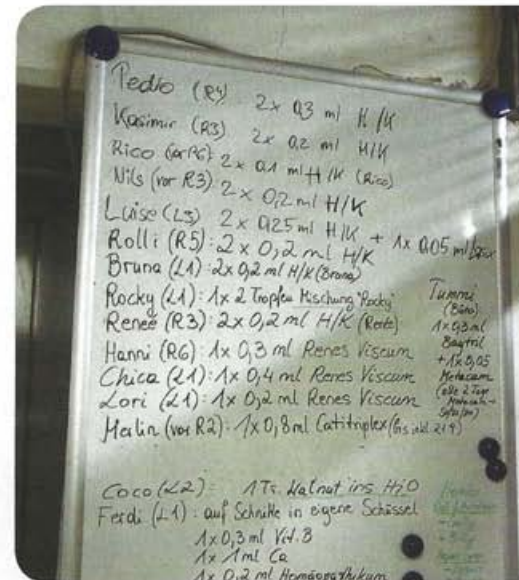 Pedro (R4) 2x 0,3 ml H/K
Kasimir (R3) 2x 0,2 ml H/K
Rico (vor R6) 2x 0,1 ml H/K (Rico)
Nils (vor R3) 2x 0,2 ml H/K
Luise (L3) 2x 0,25 ml H/K + 1x 0,05 ml
Rolli (R5): 2x 0,2 ml H/K
Bruno (L1): 2x 0,2 ml H/K (Bruno)
Rocky (L1): 1x 2 Tropfen Mischung "Rocky"
Reneé (R3): 2x 0,2 ml H/K (Reneé)
Hanni (R6): 1x 0,3 ml Renes Viscum
Chica (L1): 1x 0,4 ml Renes Viscum
Lori (L1): 1x 0,2 ml Renes Viscum
Merlin (vor R2): 1x 0,8 ml Catitriplex (bis inkl. 21.9)
Tummi
(Büro)
1x 0,3 ml
Baytril
+ 1x 0,05
Metacam
(alle 2 Tage
Metacam-
Coco (L2): 1 TL Walnut ins H2O
Ferdi (L1): auf Schnitte in eigene Schüssel
1x 0,3 ml Vit. B
1x 1 ml Ca
1x 0,2 ml Homöopathikum